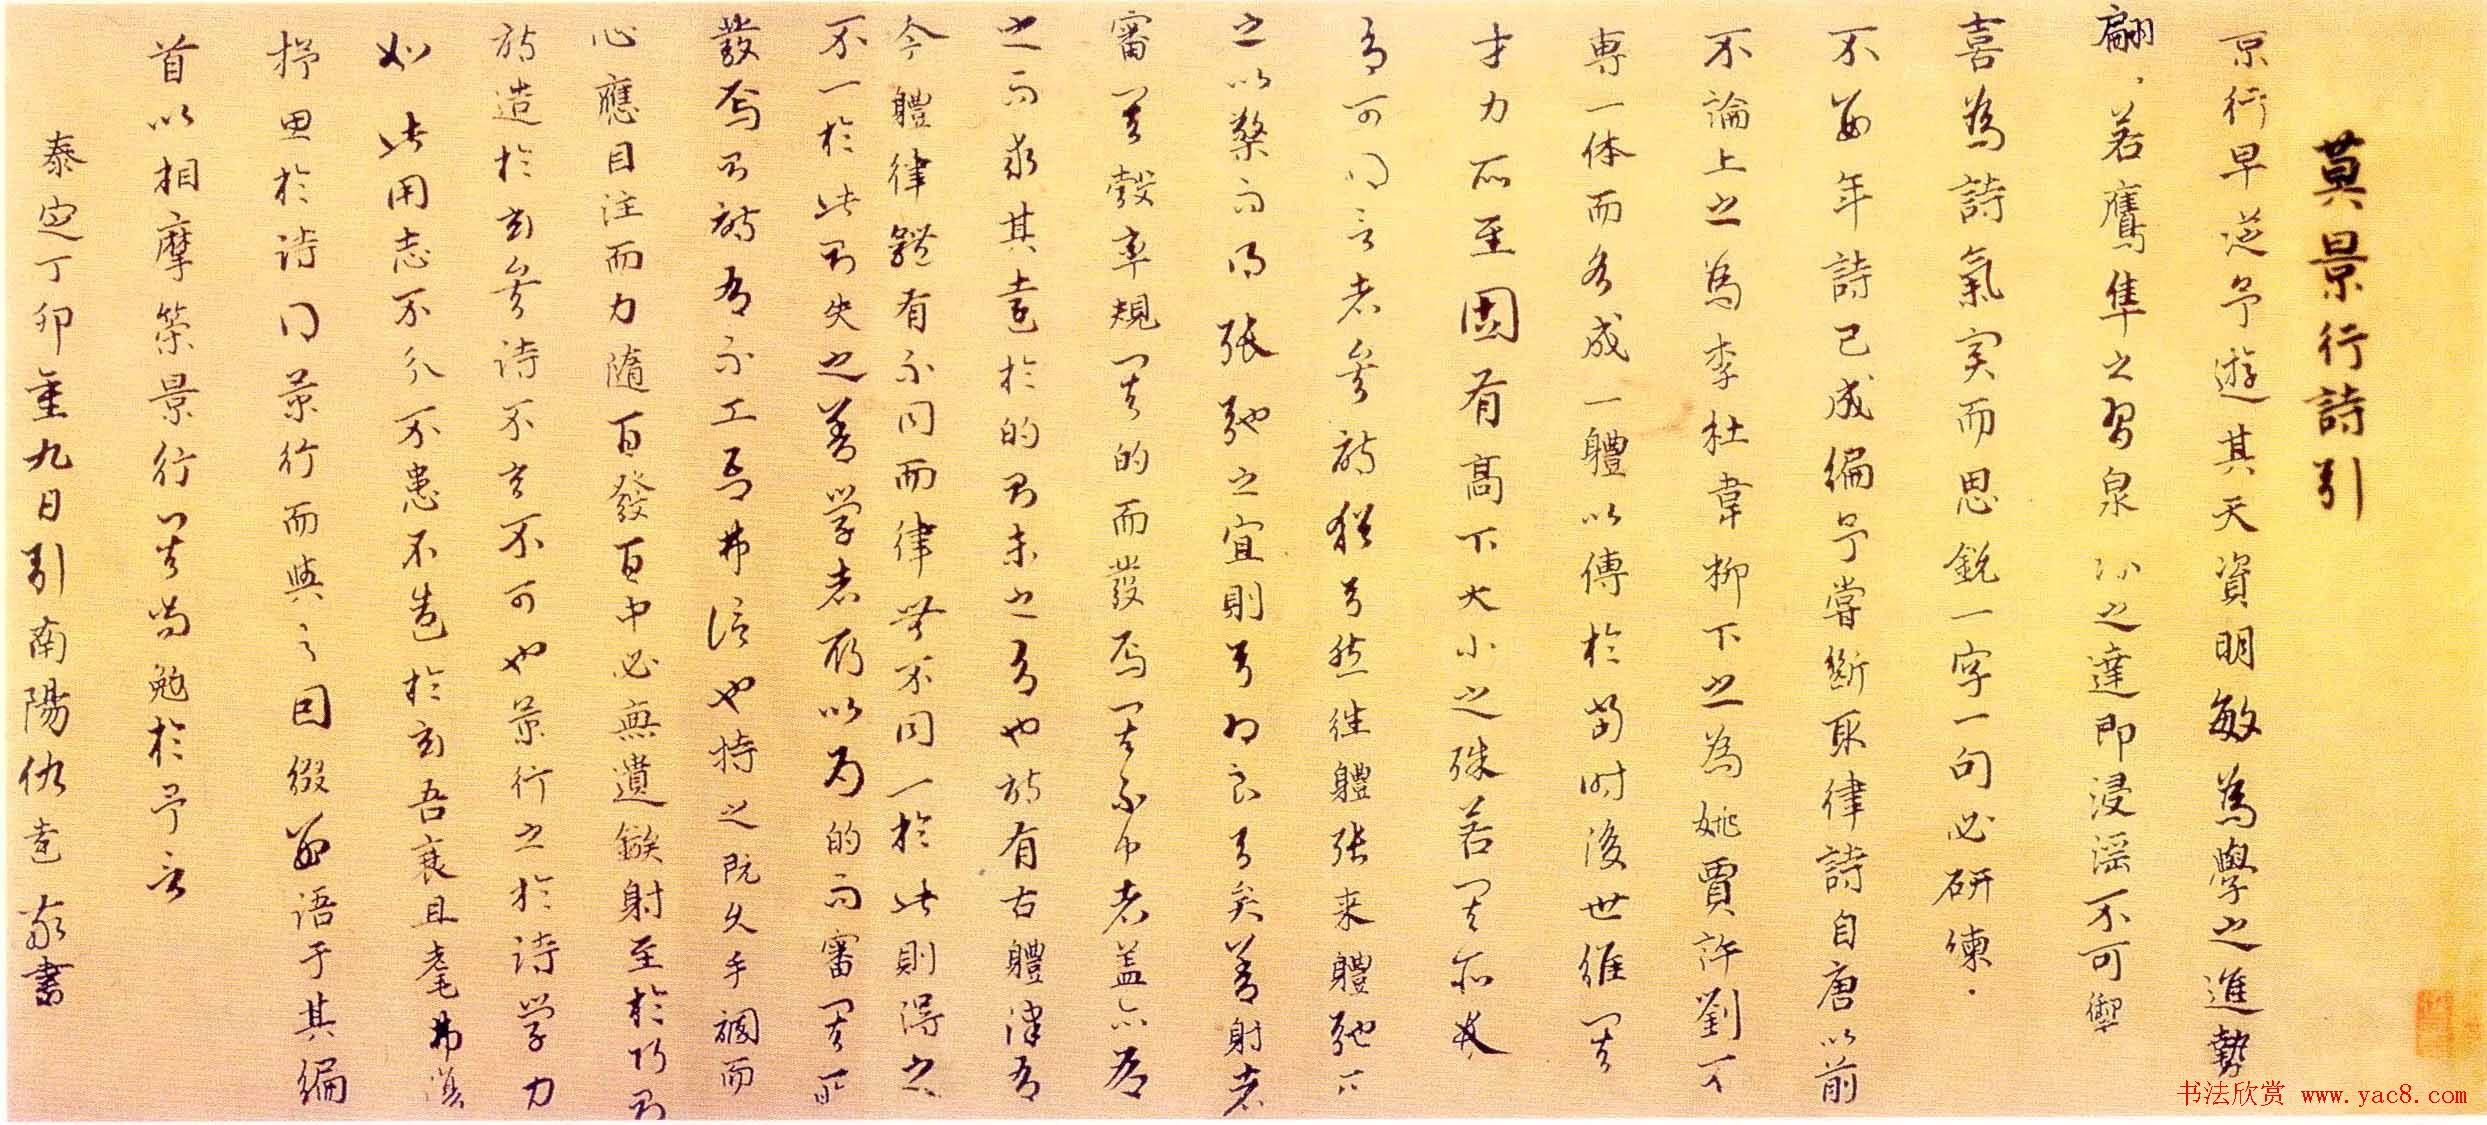 莫景行詩引
京行早從予遊其天資明敏為學之進勢
翩〻若鷹隼之習泉水之達即浸滛不可禦
喜為詩氣完而思銳一字一句必研練〻
不多年詩已成編予嘗斷取律詩自唐以前
不論上之為李杜韋柳下之為姚賈許劉不
專一体而各成一體以傳於當时後世維其
才力所至固有高下大小之殊若其所
有可得言者矣詩猶弓然往體張来體弛不
之以檠而得張弛之宜則弓乃良弓矣善射者
審其彀率規其的而發焉其不中者蓋亦
之而求其遠於的則未之有也詩有古體律有
今體律體有不同而律無不同一於此則得之
不一於此則失之善学者所以為的而審其所
發焉即詩有不工焉弗信也持之既久手調而
心應目注而力隨百發百中必無遺鏃射至於巧則
詩造於玄矣詩不玄不可也景行之於詩学力
如此用志不分不患不造於玄吾衰且耄弗復
抒思於詩得景行而與之因綴數语于其編
首以相摩䇿景行其尚勉於予言
泰定丁卯重九日引南陽仇遠敬書
书法欣赏 www.yac8.com